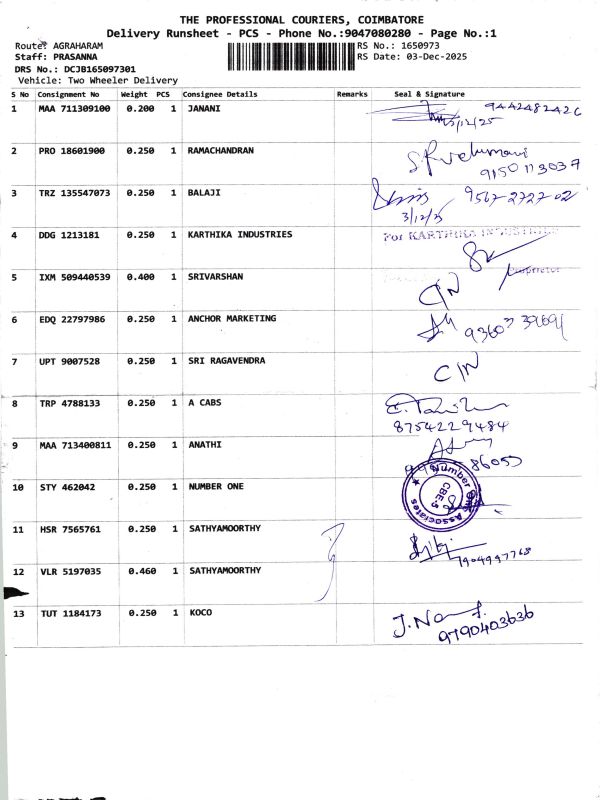 THE PROFESSIONAL COURIERS, COIMBATORE
Delivery Runsheet - PCS - Phone No.:9047080280 - Page No.:1
Route: AGRAHARAM
RS No.: 1650973
Staff: PRASANNA
RS Date: 03-Dec-2025
DRS No.: DCJB165097301
Vehicle: Two Wheeler Delivery
S No Consignment No Weight PCS Consignee Details Remarks Seal & Signature
1 MAA 711309100 0.200 1 JANANI 9442482426
3/12/25
2 PRO 18601900 0.250 1 RAMACHANDRAN
9150113037
3 TRZ 135547073 0.250 1 BALAJI 9567-2727-02
3/12/25
4 DDG 1213181 0.250 1 KARTHIKA INDUSTRIES For KARTHIKA INDUSTRIES
Proprietor
5 IXM 509440539 0.400 1 SRIVARSHAN C/N
6 EDQ 22797986 0.250 1 ANCHOR MARKETING
7 UPT 9007528 0.250 1 SRI RAGAVENDRA C/N
8 TRP 4788133 0.250 1 A CABS
8754229484
9 MAA 713400811 0.250 1 ANATHI
86055
10 STY 462042 0.250 1 NUMBER ONE ★ Number One Associates CBE-5
11 HSR 7565761 0.250 1 SATHYAMOORTHY
7904997768
12 VLR 5197035 0.460 1 SATHYAMOORTHY
13 TUT 1184173 0.250 1 KOCO
9790403636